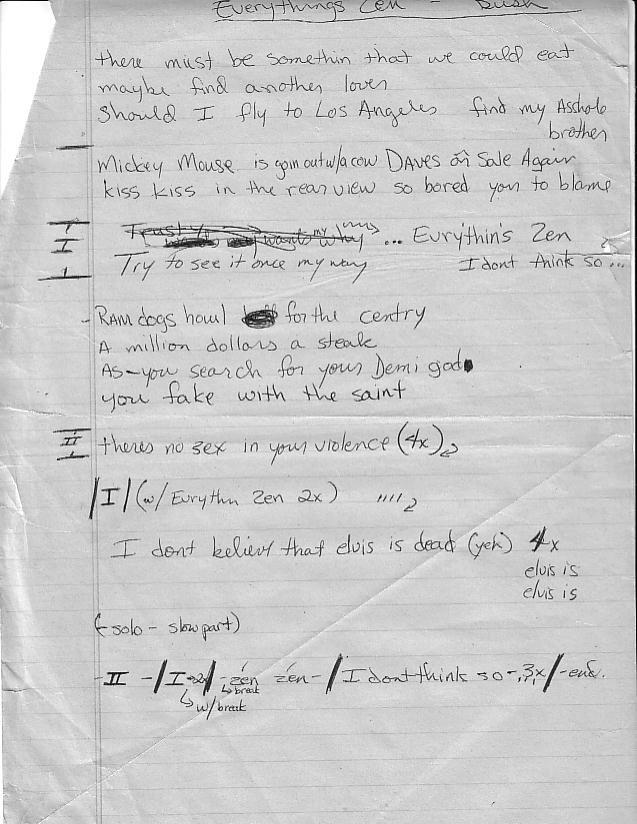 Everythings Zen - Bush
there must be somethin that we could eat
maybe find another lover
Should I fly to Los Angeles find my Asshole
brother
Mickey Mouse is goin out w/a cow DAVES on Sale Again
kiss kiss in the rear view so bored you to blame
I ... Evry'thin's Zen
Try to see it once my way I dont think so...
- RAIN dogs howl for the centry
A million dollars a steak
AS - you search for your Demi god
you fake with the saint
II theres no sex in your violence (4x)
|I| (w/ Evrythn Zen 2x) ''''2
I dont believe that elvis is dead (yeh) 4x
elvis is
elvis is
(- solo - slow part)
- II - / I / - zen zen - / I dont think so -, 3x / - end.
↳ w/break ↳ break